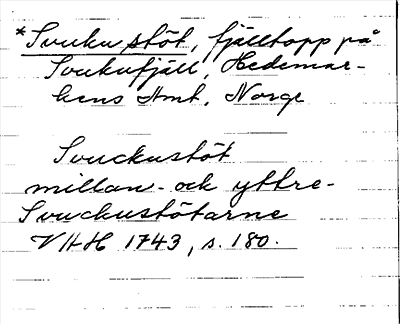 *Svuku stöt, fjälltopp på
Svukufjäll, Hedemar-
kens Amt, Norge
Svuckustöt
millan- och yttre-
Svuckustötarne
VHH 1743, s. 180.